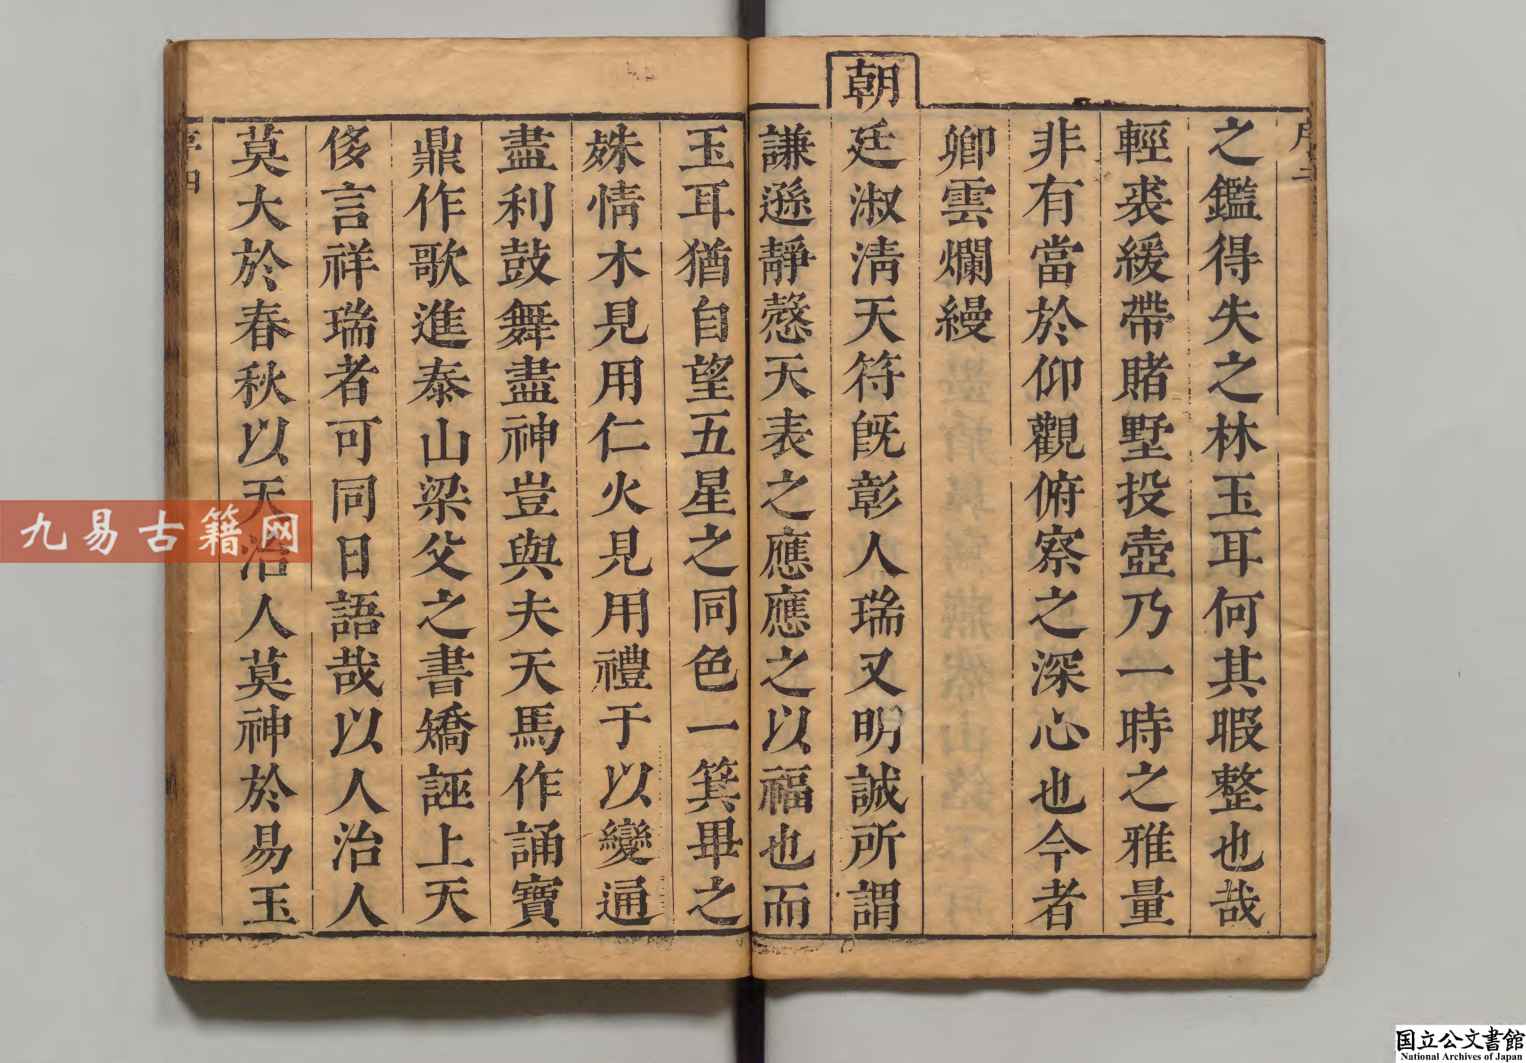 之鑑得失之林玉耳何其暇整也哉
輕裘緩帶賭墅投壺乃一時之雅量
非有當於仰觀俯察之深心也今者
卿雲爛縵
朝
廷淑淸天符旣彰人瑞又明誠所謂
謙遜靜慤天表之應應之以福也而
玉耳猶自望五星之同色一箕畢之
殊情木見用仁火見用禮于以變通
盡利鼓舞盡神豈與夫天馬作誦寶
鼎作歌進泰山梁父之書矯誣上天
侈言祥瑞者可同日語哉以人治人
莫大於春秋以天治人莫神於易玉
序四
九易古籍网
国立公文書館
National Archives of Japan